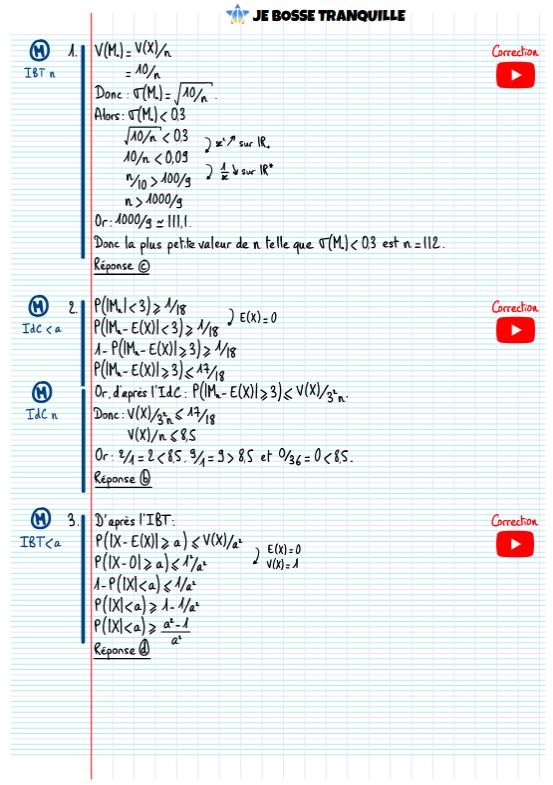 JE BOSSE TRANQUILLE
M
IBT n
Correction
1. V(Mₙ) = V(X)/n
= 10/n
Donc : σ(Mₙ) = √10/n.
Alors : σ(Mₙ) < 0,3
√10/n < 0,3
x² ↗ sur ℝ₊
10/n < 0,09
1/x ↘ sur ℝ*
n/10 > 100/9
n > 1000/9
Or : 1000/9 ≃ 111,1.
Donc la plus petite valeur de n telle que σ(Mₙ) < 0,3 est n = 112.
Réponse ⓒ
M
IdC < a
Correction
2. P(|Mₙ| < 3) ⩾ 1/18
E(X) = 0
P(|Mₙ - E(X)| < 3) ⩾ 1/18
1 - P(|Mₙ - E(X)| ⩾ 3) ⩾ 1/18
P(|Mₙ - E(X)| ⩾ 3) ⩽ 17/18
M
IdC n
Or, d'après l'IdC : P(|Mₙ - E(X)| ⩾ 3) ⩽ V(X)/3²n.
Donc : V(X)/3²n ⩽ 17/18
V(X)/n ⩽ 8,5
Or : 2/1 = 2 < 8,5, 9/1 = 9 > 8,5 et 0/36 = 0 < 8,5.
Réponse ⓑ
M
IBT < a
Correction
3. D'après l'IBT :
P(|X - E(X)| ⩾ a) ⩽ V(X)/a²
E(X) = 0
V(X) = 1
P(|X - 0| ⩾ a) ⩽ 1²/a²
1 - P(|X| < a) ⩽ 1/a²
P(|X| < a) ⩾ 1 - 1/a²
P(|X| < a) ⩾ a² - 1 / a²
Réponse ⓓ